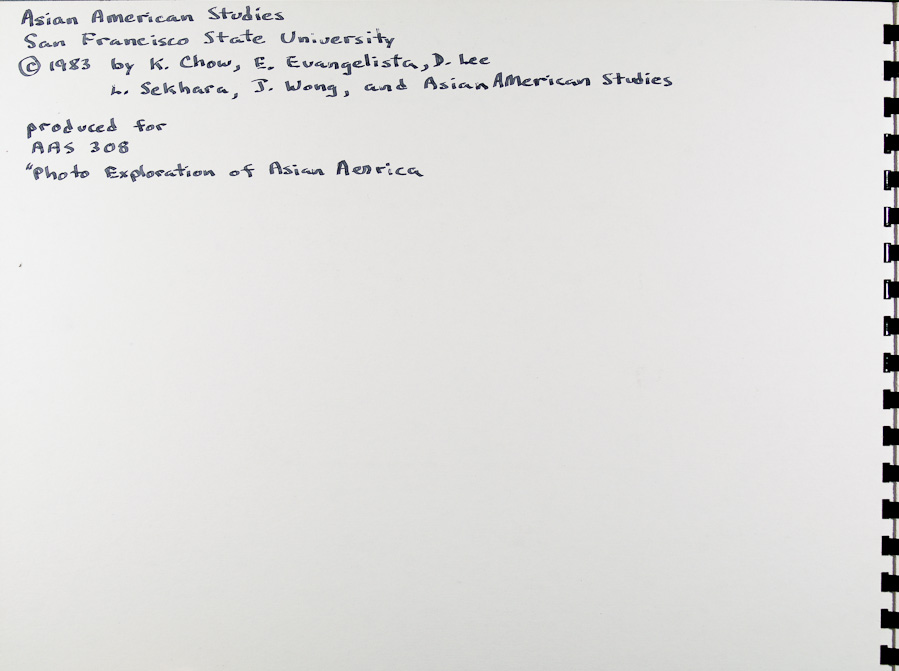 Asian American Studies
San Francisco State University
© 1983 by K. Chow, E. Evangelista, D. Lee
L. Sekhara, J. Wong, and Asian AMerican Studies
produced for
AAS 308
"Photo Exploration of Asian Aemrica